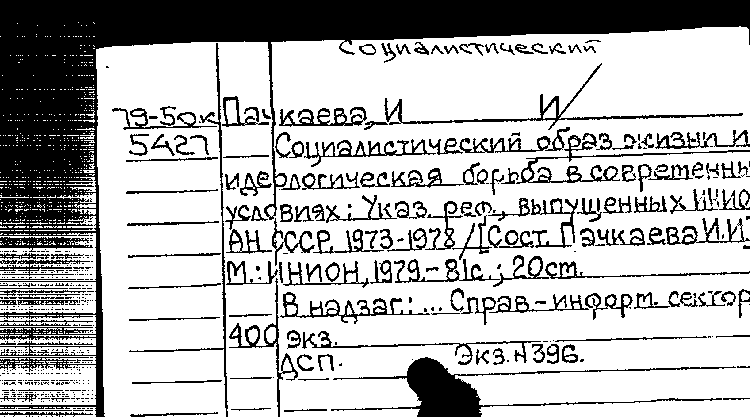 Социалистический
79-50к Пачкаева, И И
5427 Социалистический образ жизни и
идеологическая борьба в современны
условиях: Указ. реф., выпущенных ИНИО
АН СССР, 1973-1978 / [Сост. Пачкаева И.И.
М.: ИНИОН, 1979.- 81с.; 20см.
В надзаг.: ... Справ.-информ. сектор
400 экз.
ДСП. Экз.N396.